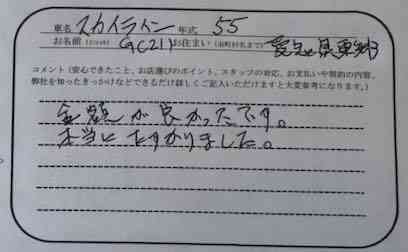 車名 スカイライン 年式 55
お名前(ﾆｯｸﾈｰﾑ) GC211 お住まい(市町村名まで) 愛知県東郷
コメント(安心できたこと、お店選びのポイント、スタッフの対応、お支払いや契約の内容、
弊社を知ったきっかけなどできるだけ詳しくご記入いただけますと大変参考になります。)
金額が良かったです。
本当にたすかりました。